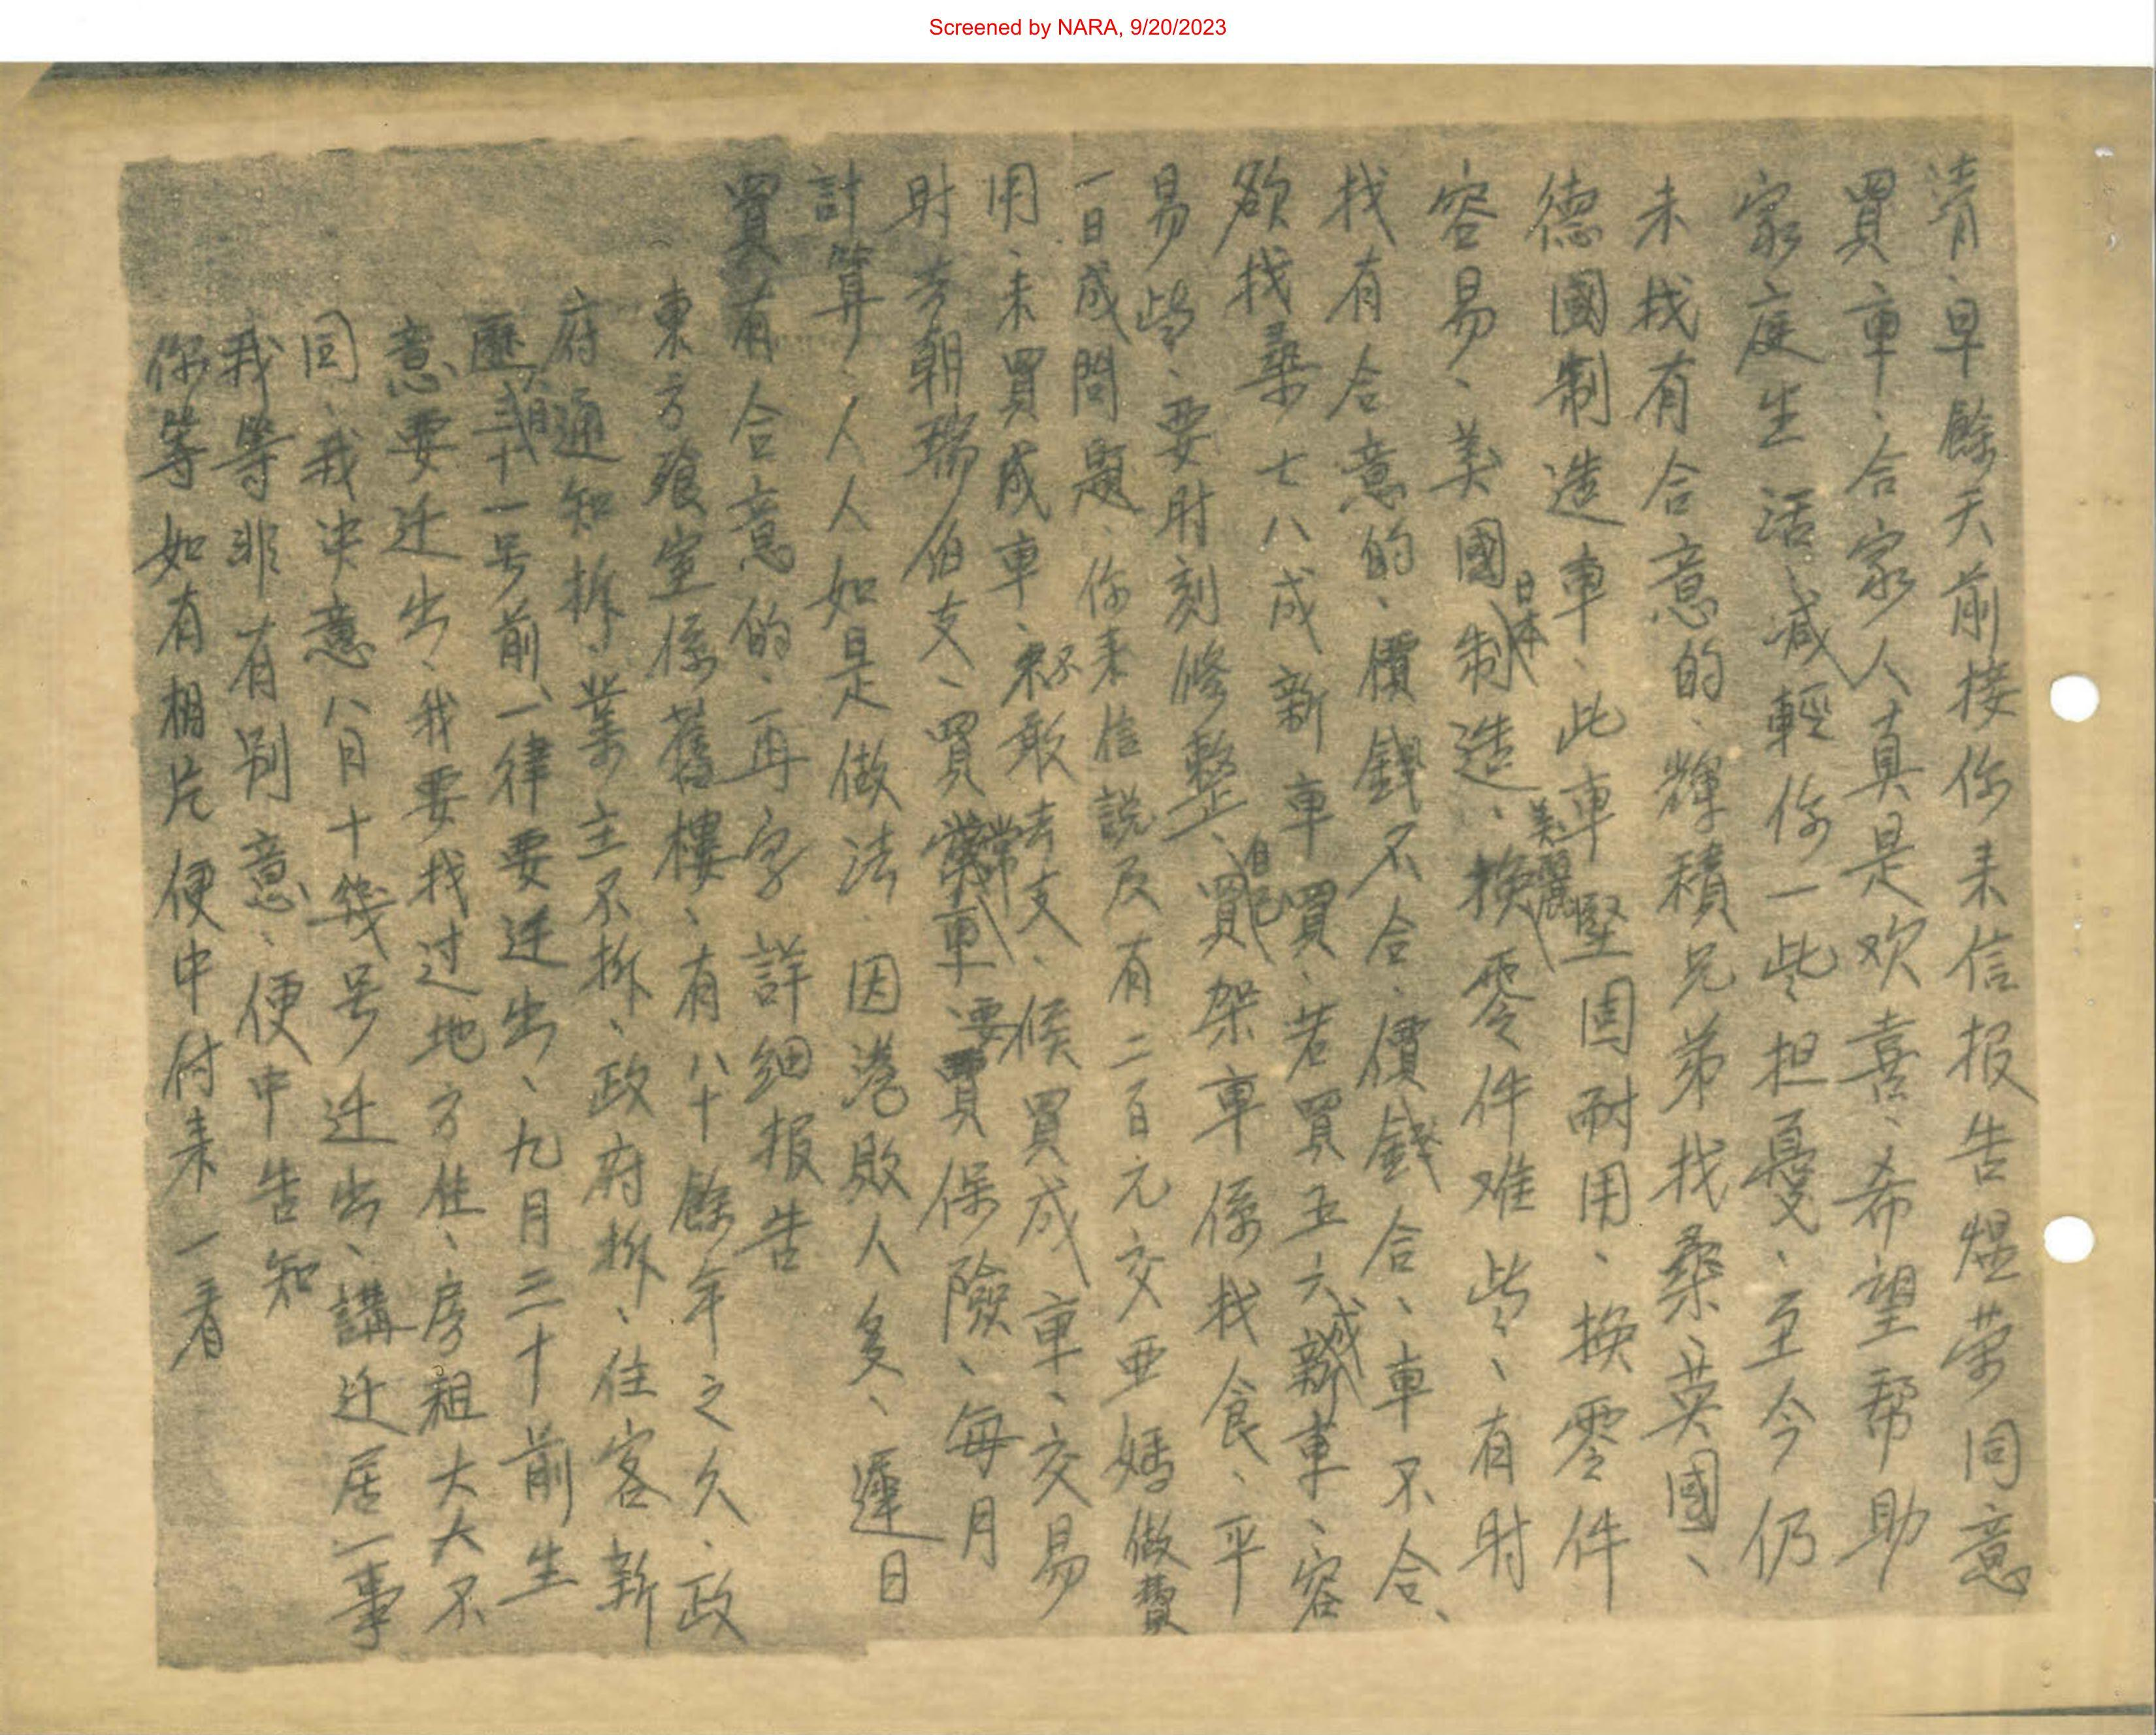 Screened by NARA, 9/20/2023
清、早餘天前接你來信报告煜荣同意
買車、合家人真是欢喜、希望帮助
家庭生活、减輕你一些担憂、至今仍
未找有合意的、輝積兄弟找桑英國、
德國制造車、此車美麗堅固耐用、換零件
容易、美國日本制造、換零件难些、有时
找有合意的、價錢不合、價錢合、車不合、
欲找桑七八成新車買、若買五六成新車、容
易些、要时刻修整、自己買架車係找食、平
一日成問題、你来信説及有二百元交亚嬌做費
用、未買成車、不敢去支、候買成車、交易
时去朝瑞伯支、買車要買保險、每月
計算、人人如是做法、因港敗人多、遲日
買有合意的、再字詳细报告
東方餐室係舊樓、有八十餘年之久、政
府通知拆、業主不拆、政府拆、住客新
歷八月三十一号前一律要迁出、九月三十前生
意要迁出、我要找过地方住、房租大大不
同、我决意八月十幾号迁出、講迁居一事
我等非有别意、便中告知
你等如有相片便中付来一看